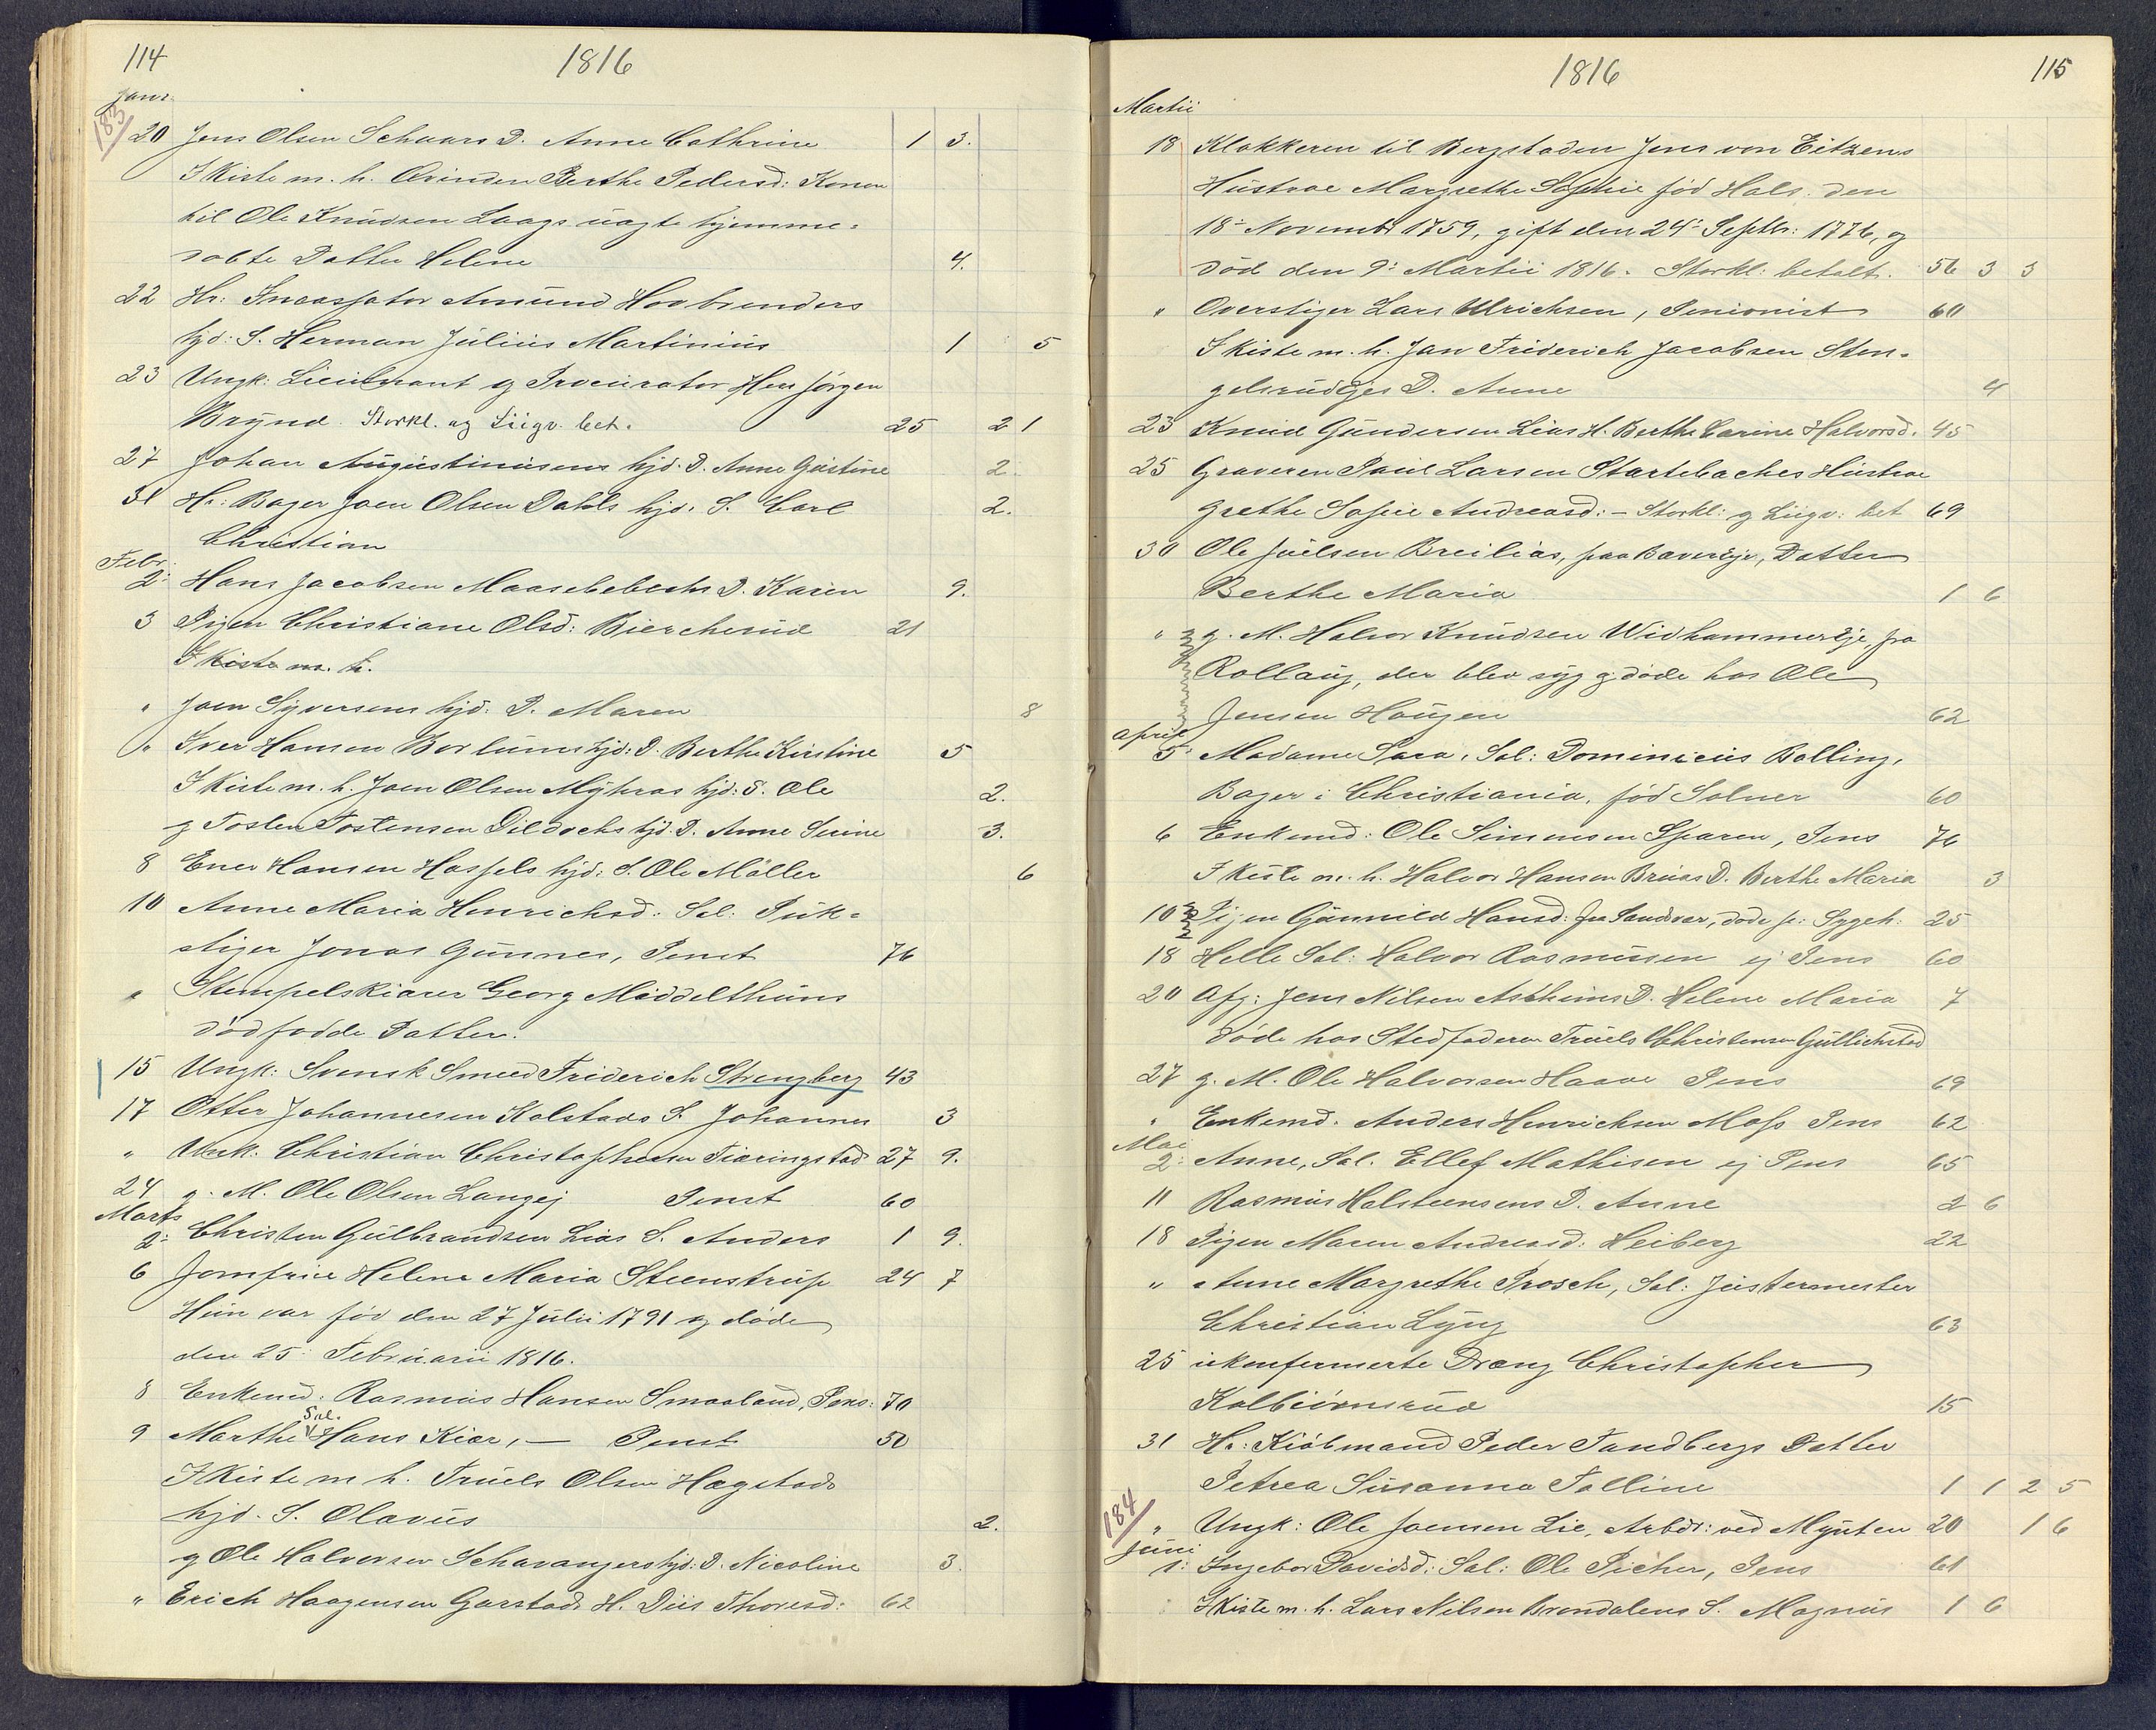 114
1816
Janr.
183
20 Jens Olsen Schaars D. Anne Cathrine 1 3.
I Kiste m. h. Qvinden Berthe Pedersd: Konen
til Ole Knudsen Laags uægte hjemme-
døbte Datter Helene 4.
22 Hr: Incassator Amund Hovbrenders
hjd: S. Herman Julius Martinius 1 5
23 Ungk: Lieutenant og Procurator Herr Jørgen
Brÿnd. Storkl. og Liigv. bet. 25 2 1
27 Johan Augustinusens hjd. D. Anne Gustine 2.
31 Hr: Bager Joen Olsen Dahls hjd. S. Carl 2.
Christian
Febr.
2: Hans Jacobsen Maasebechs D. Karen 9.
3 Pigen Christiane Olsd: Biercherud 21
I Kiste m. h.
" Joen Syversens hjd. D. Maren 8
" Iver Hansen Borlums hjd: D. Berthe Kirstine 5
I Kiste m. h. Joen Olsen Mÿhras hjd: S. Ole 2.
og Tosten Tostensen Dildochs hjd. D. Anne Serine 3.
8 Ener Hansen Hassels hjd: S. Ole Møller 6
10 Anne Maria Henrichsd: Sal: Puk-
stiger Jonas Gunnes, Penst 76
" Stempelskiærer Georg Middelthuns
dødfødde Datter.
15 Ungk: Svensk Smeed Friderich Strengberg 43
17 Otter Johannesen Kolstads S. Johannes 3
" Ungk: Christian Christophersen Tiæringstad 27 9.
24 g. M. Ole Olsen Langej Penst 60
Marts
2: Christen Gulbrandsen Lias S. Anders 1 9.
6 Jomfrue Helene Maria Steenstrup 24 7
Hun var fød den 27 Julii 1791 og døde
den 25: Februarii 1816.
8 Enkemd. Rasmus Hansen Smaaland, Pens: 70
Sal.
9 Marthe Hans Kiær, — Penst 50
I Kiste m h. Truels Olsen Hægstads
hjd. S. Olavus 2.
og Ole Halvorsen Schavangers hjd: D. Nicoline 3.
" Erich Haagensen Garstads H. Diis Thoresd: 62
1816
115
Martii
18 Klokkeren til Bergstaden Jens von Eitzens
Hustrue Margrethe Sophie fød Hals. den
18: Novembr 1759, gift den 24: Septbr: 1776, og
død den 9: Martii 1816. Storkl: betalt. 56 3 3
" Overstiger Lars Ulrichsen, Penionist 60
I Kiste m. h. Jan Friderich Jacobsen Sten-
gelsrudejes D. Anne 4
23 Knud Gundersen Lias H. Berthe Carine Halvorsd. 45
25 Graveren Poul Larsen Startebaches Hustrue
Grethe Sofie Andreasd: — Storkl: og Liigv: bet 69
30 Ole Juelsen Breilias, paa Baverøje, Datter
Berthe Maria 1 6
" g. M. Halvor Knudsen Widhammereje, fra
Rollaug, der blev syg og døde hos Ole
Jensen Hougen 62
April
5 Madame Sara, Sal: Dominicus Bolling,
Bager i Christiania, fød Solner 60
6 Enkemd: Ole Simensen Sparen, Pens 76
I Kiste m. h. Halvor Hansen Bruas D. Berthe Maria 3
10 Pigen Gunnild Hansd: fra Sandsvær, døde p: Sygeh: 25
18 Helle Sal: Halvor Rasmussen ej Pens 60
20 Afg: Jens Nilsen Astheims D. Helene Maria 7
døde hos Stedfaderen Truels Christensen Gullichstad
27 g. M. Ole Halvorsen Haave Pens 69
" Enkemd. Anders Henrichsen Moss Pens 62
Mai
2: Anne, Sal. Ellef Mathisen ej Pens 65
11 Rasmus Halsteensens D. Anne 2 6
18 Pigen Maren Andreasd: Heiberg 22
" Anne Margrethe Prosch, Sal: Justermester
Christian Lÿng 63
25 ukonfermerte Dreng Christopher
Kolbiörnsrud 15
31 Hr: Kiöbmand Peder Tandbergs Datter
Petrea Susanna Talline 1 1 2 5
184
" Ungk: Ole Joensen Lie, Arbdr: ved Mÿnten 20 1 6
Juni
1: Ingebor Davidsd: Sal: Ole Picher, Pens 61
I Kiste m. h. Lars Nilsen Brendalens S. Magnus 1 6